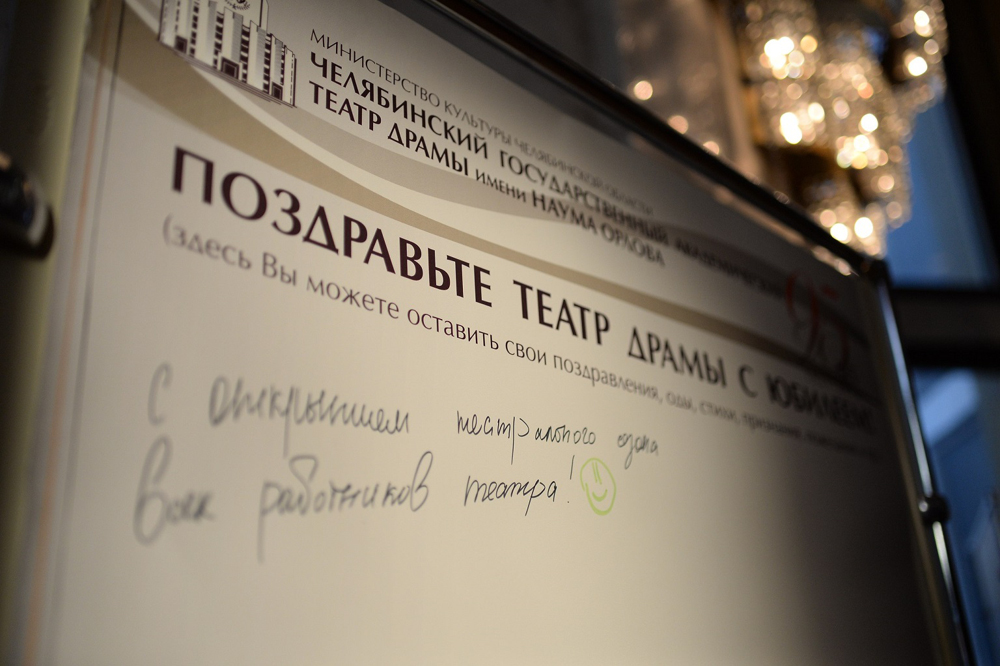 МИНИСТЕРСТВО КУЛЬТУРЫ ЧЕЛЯБИНСКОЙ ОБЛАСТИ
ЧЕЛЯБИНСКИЙ ГОСУДАРСТВЕННЫЙ АКАДЕМИЧЕСКИЙ
ТЕАТР ДРАМЫ ИМЕНИ НАУМА ОРЛОВА
95
ПОЗДРАВЬТЕ ТЕАТР ДРАМЫ С ЮБИЛЕЕМ!
(здесь Вы можете оставить свои поздравления, оды, стихи, признания,
С открытием театрального
Всех работников театра!